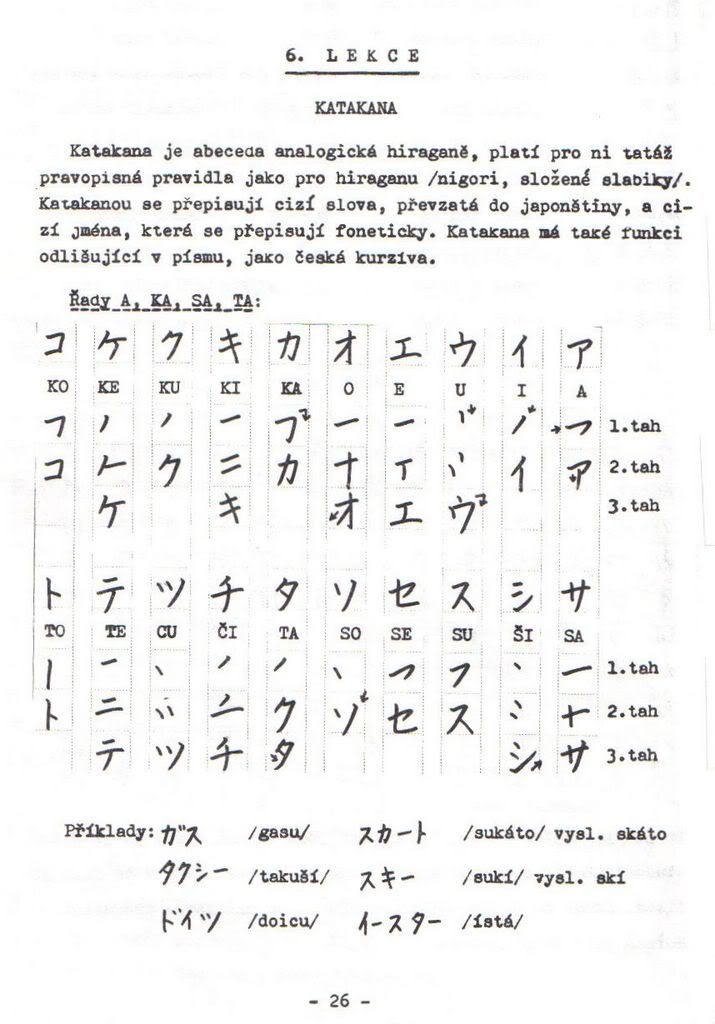 6. LEKCE
KATAKANA
Katakana je abeceda analogická hiraganě, platí pro ni tatáž
pravopisná pravidla jako pro hiraganu /nigori, složené slabiky/.
Katakanou se přepisují cizí slova, převzatá do japonštiny, a ci-
zí jména, která se přepisují foneticky. Katakana má také funkci
odlišující v písmu, jako česká kurziva.
Řady A, KA, SA, TA:
コ ケ ク キ カ オ エ ウ イ ア
KO KE KU KI KA O E U I A
1.tah
2.tah
3.tah
ト テ ツ チ タ ソ セ ス シ サ
TO TE CU ČI TA SO SE SU ŠI SA
1.tah
2.tah
3.tah
Příklady: ガス /gasu/ スカート /sukáto/ vysl. skáto
タクシー /takuší/ スキー /sukí/ vysl. skí
ドイツ /doicu/ イースター /ístá/
- 26 -